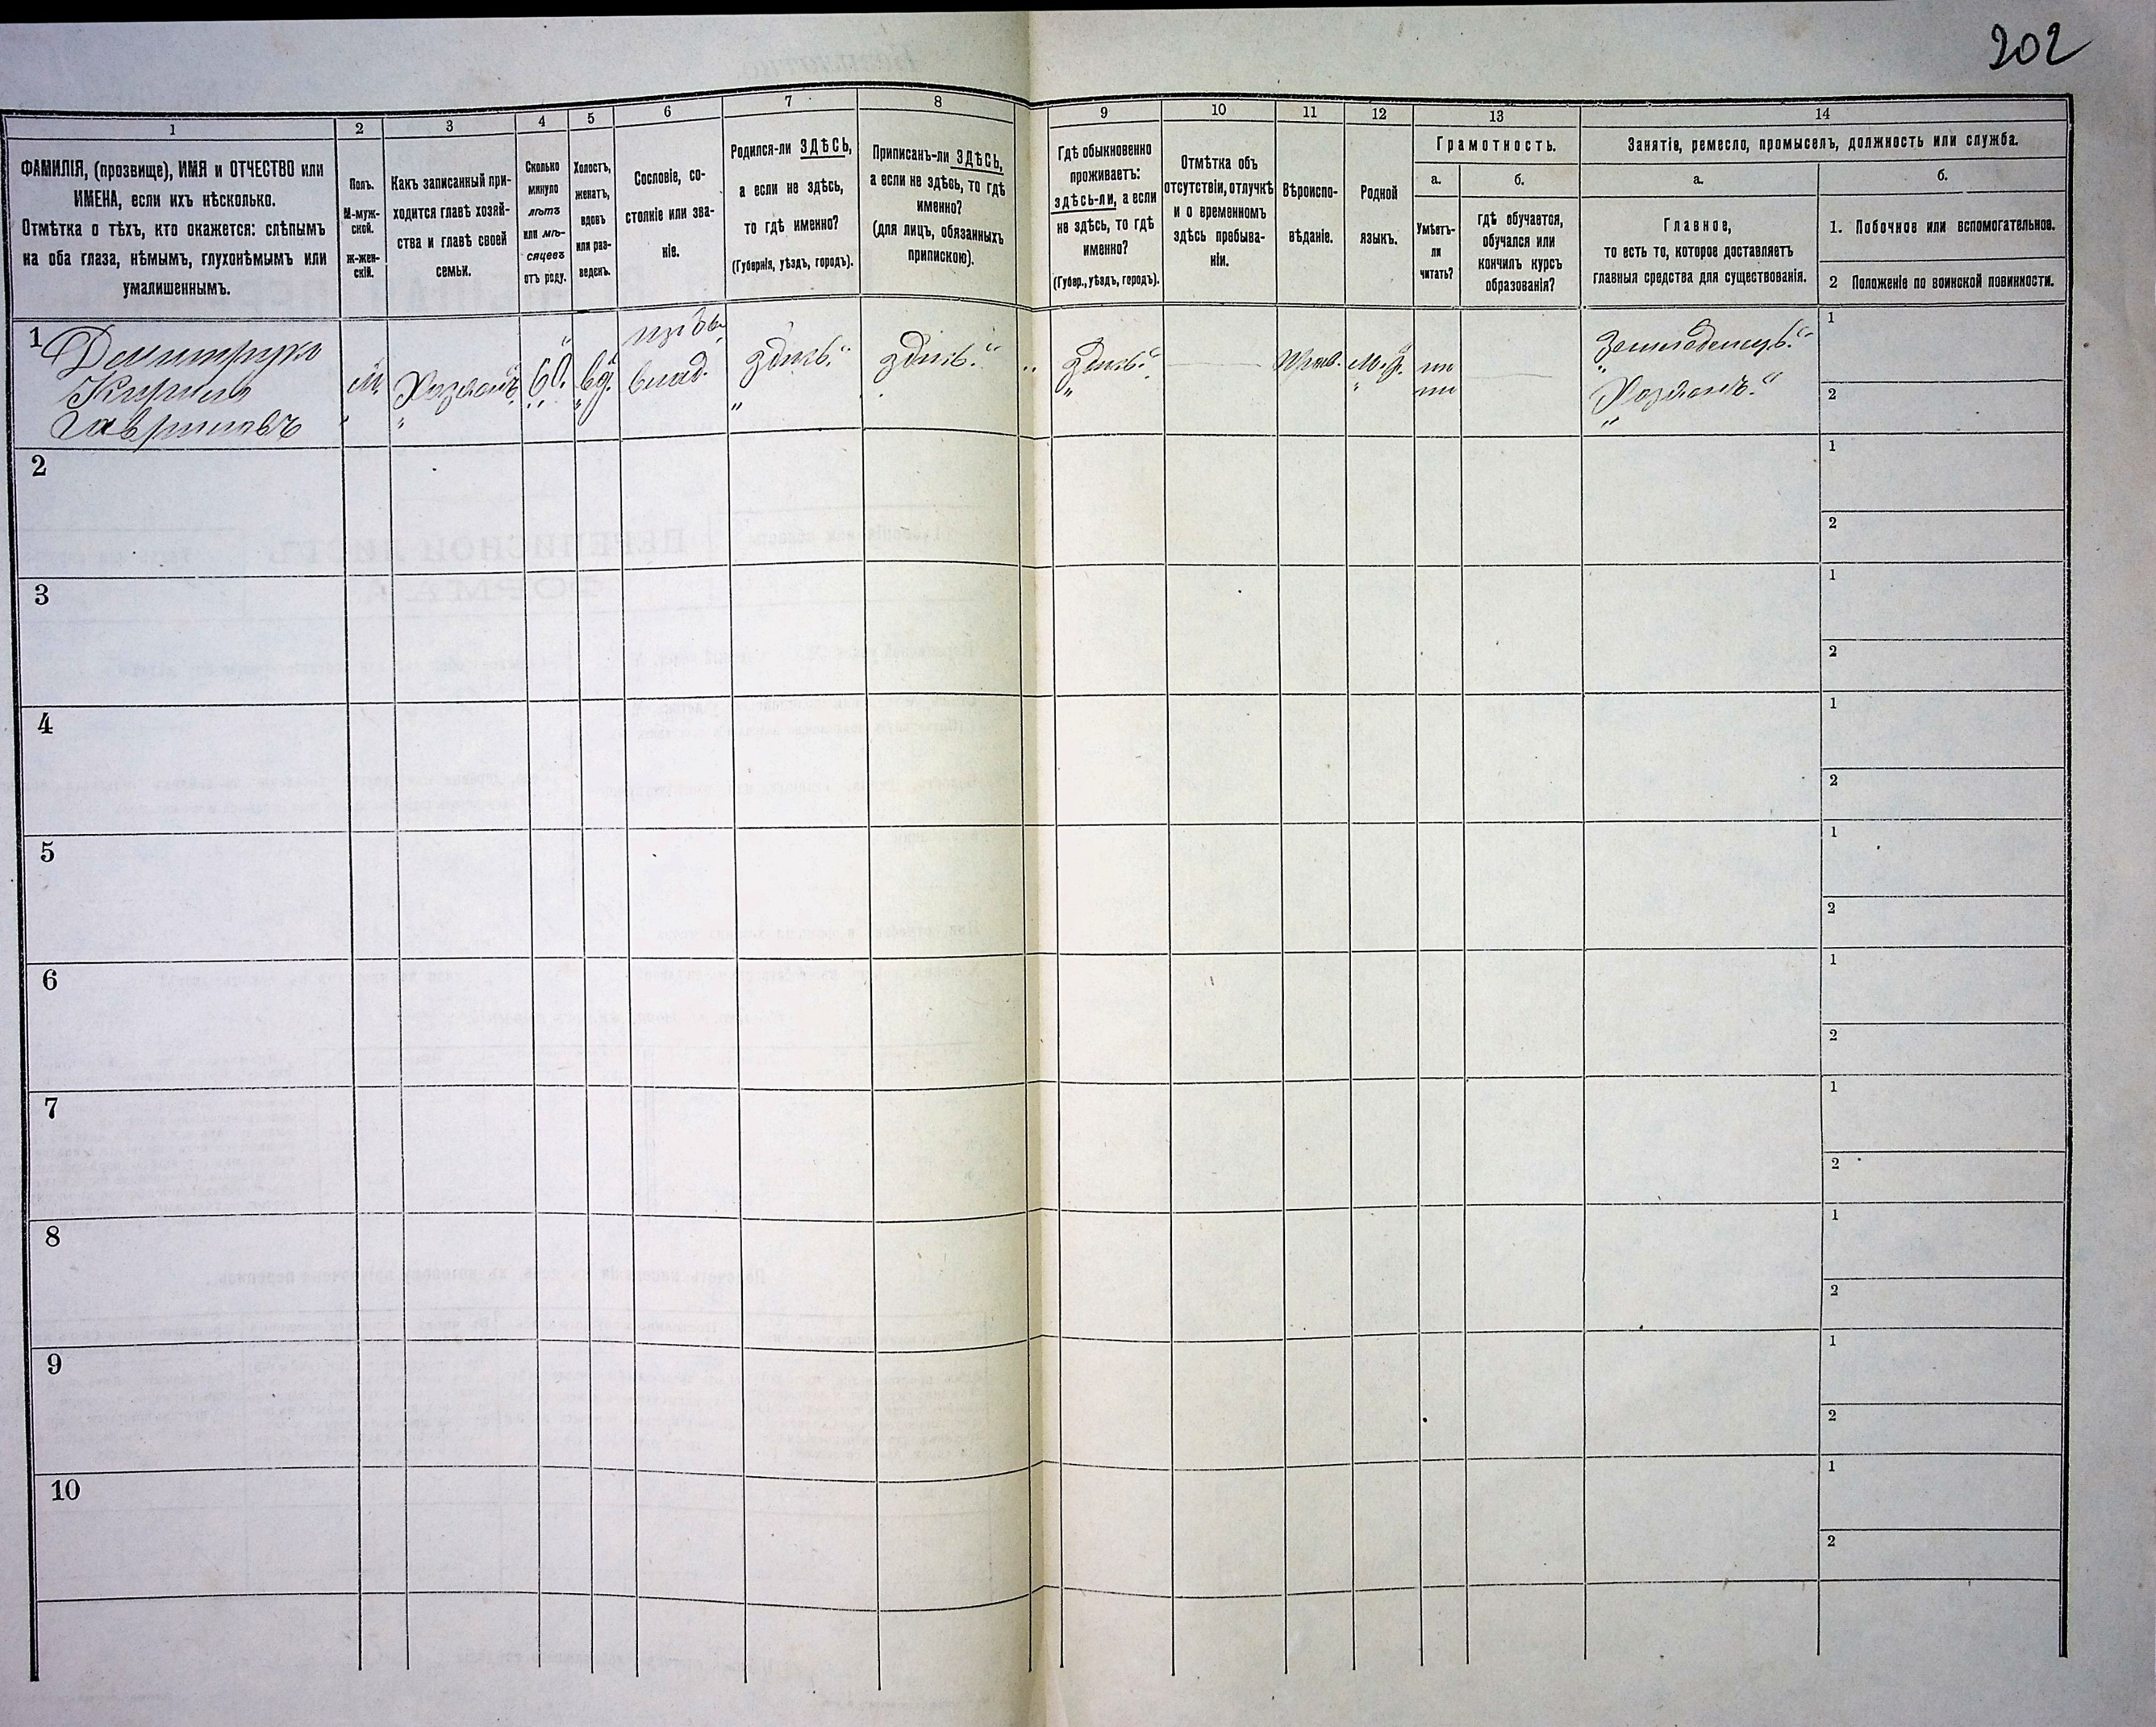 202
1
2
3
4
5
6
7
8
9
10
11
12
13
14
ФАМИЛІЯ, (прозвище), ИМЯ и ОТЧЕСТВО или
ИМЕНА, если ихъ нѣсколько.
Отмѣтка о тѣхъ, кто окажется: слѣпымъ
на оба глаза, нѣмымъ, глухонѣмымъ или
умалишеннымъ.
Полъ.
М-муж-
ской.
ж-жен-
скій.
Какъ записанный при-
ходится главѣ хозяй-
ства и главѣ своей
семьи.
Сколько
минуло
лѣтъ
или мѣ-
сяцевъ
отъ роду.
Холостъ,
женатъ,
вдовъ
или раз-
веденъ.
Сословіе, со-
стояніе или зва-
ніе.
Родился-ли ЗДѢСЬ,
а если не здѣсь,
то гдѣ именно?
(Губернія, уѣздъ, городъ).
Приписанъ-ли ЗДѢСЬ,
а если не здѣсь, то гдѣ
именно?
(для лицъ, обязанныхъ
припискою).
Гдѣ обыкновенно
проживаетъ:
здѣсь-ли, а если
не здѣсь, то гдѣ
именно?
(Губер., уѣздъ, городъ).
Отмѣтка объ
отсутствіи, отлучкѣ
и о временномъ
здѣсь пребыва-
ніи.
Вѣроиспо-
вѣданіе.
Родной
языкъ.
Грамотность.
а.
Умѣетъ-
ли
читать?
б.
гдѣ обучается,
обучался или
кончилъ курсъ
образованія?
Занятія, ремесло, промыселъ, должность или служба.
а.
Главное,
то есть то, которое доставляетъ
главныя средства для существованія.
б.
1. Побочное или вспомогательное.
2 Положеніе по воинской повинности.
1
Дмитрукъ
Кирилъ
Гавриловъ
м.
Хозяинъ
60.
вд.
влад.
здѣсь."
здѣсь."
здѣсь."
Прав.
м.р.
Земледелецъ."
Хозяинъ."
1
2
2
1
2
3
1
2
4
1
2
5
1
2
6
1
2
7
1
2
8
1
2
9
1
2
10
1
2